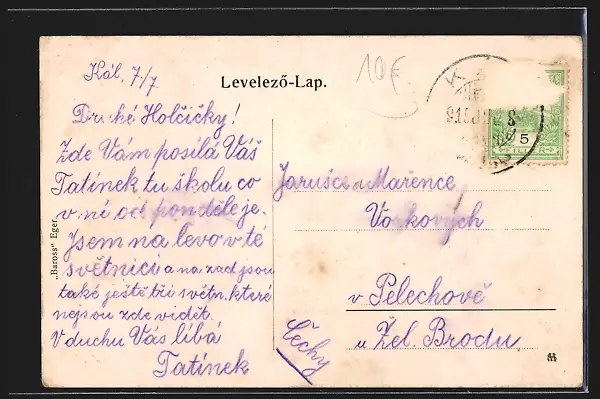 Kál, 7/7
10 F
Levelező-Lap.
Drahé Holčičky!
Zde Vám posílá Váš
Tatínek tu školu co
v ní od ponděleje.
Jsem na levo v té
světnici a na zad jsou
také ještě tři světn. které
nejsou zde vidět.
V duchu Vás líbá
Tatínek
„Baross" Eger.
5
FILLÉR
Jarušce a Mařence
v Pelechově
u Žel. Brodu
Čechy